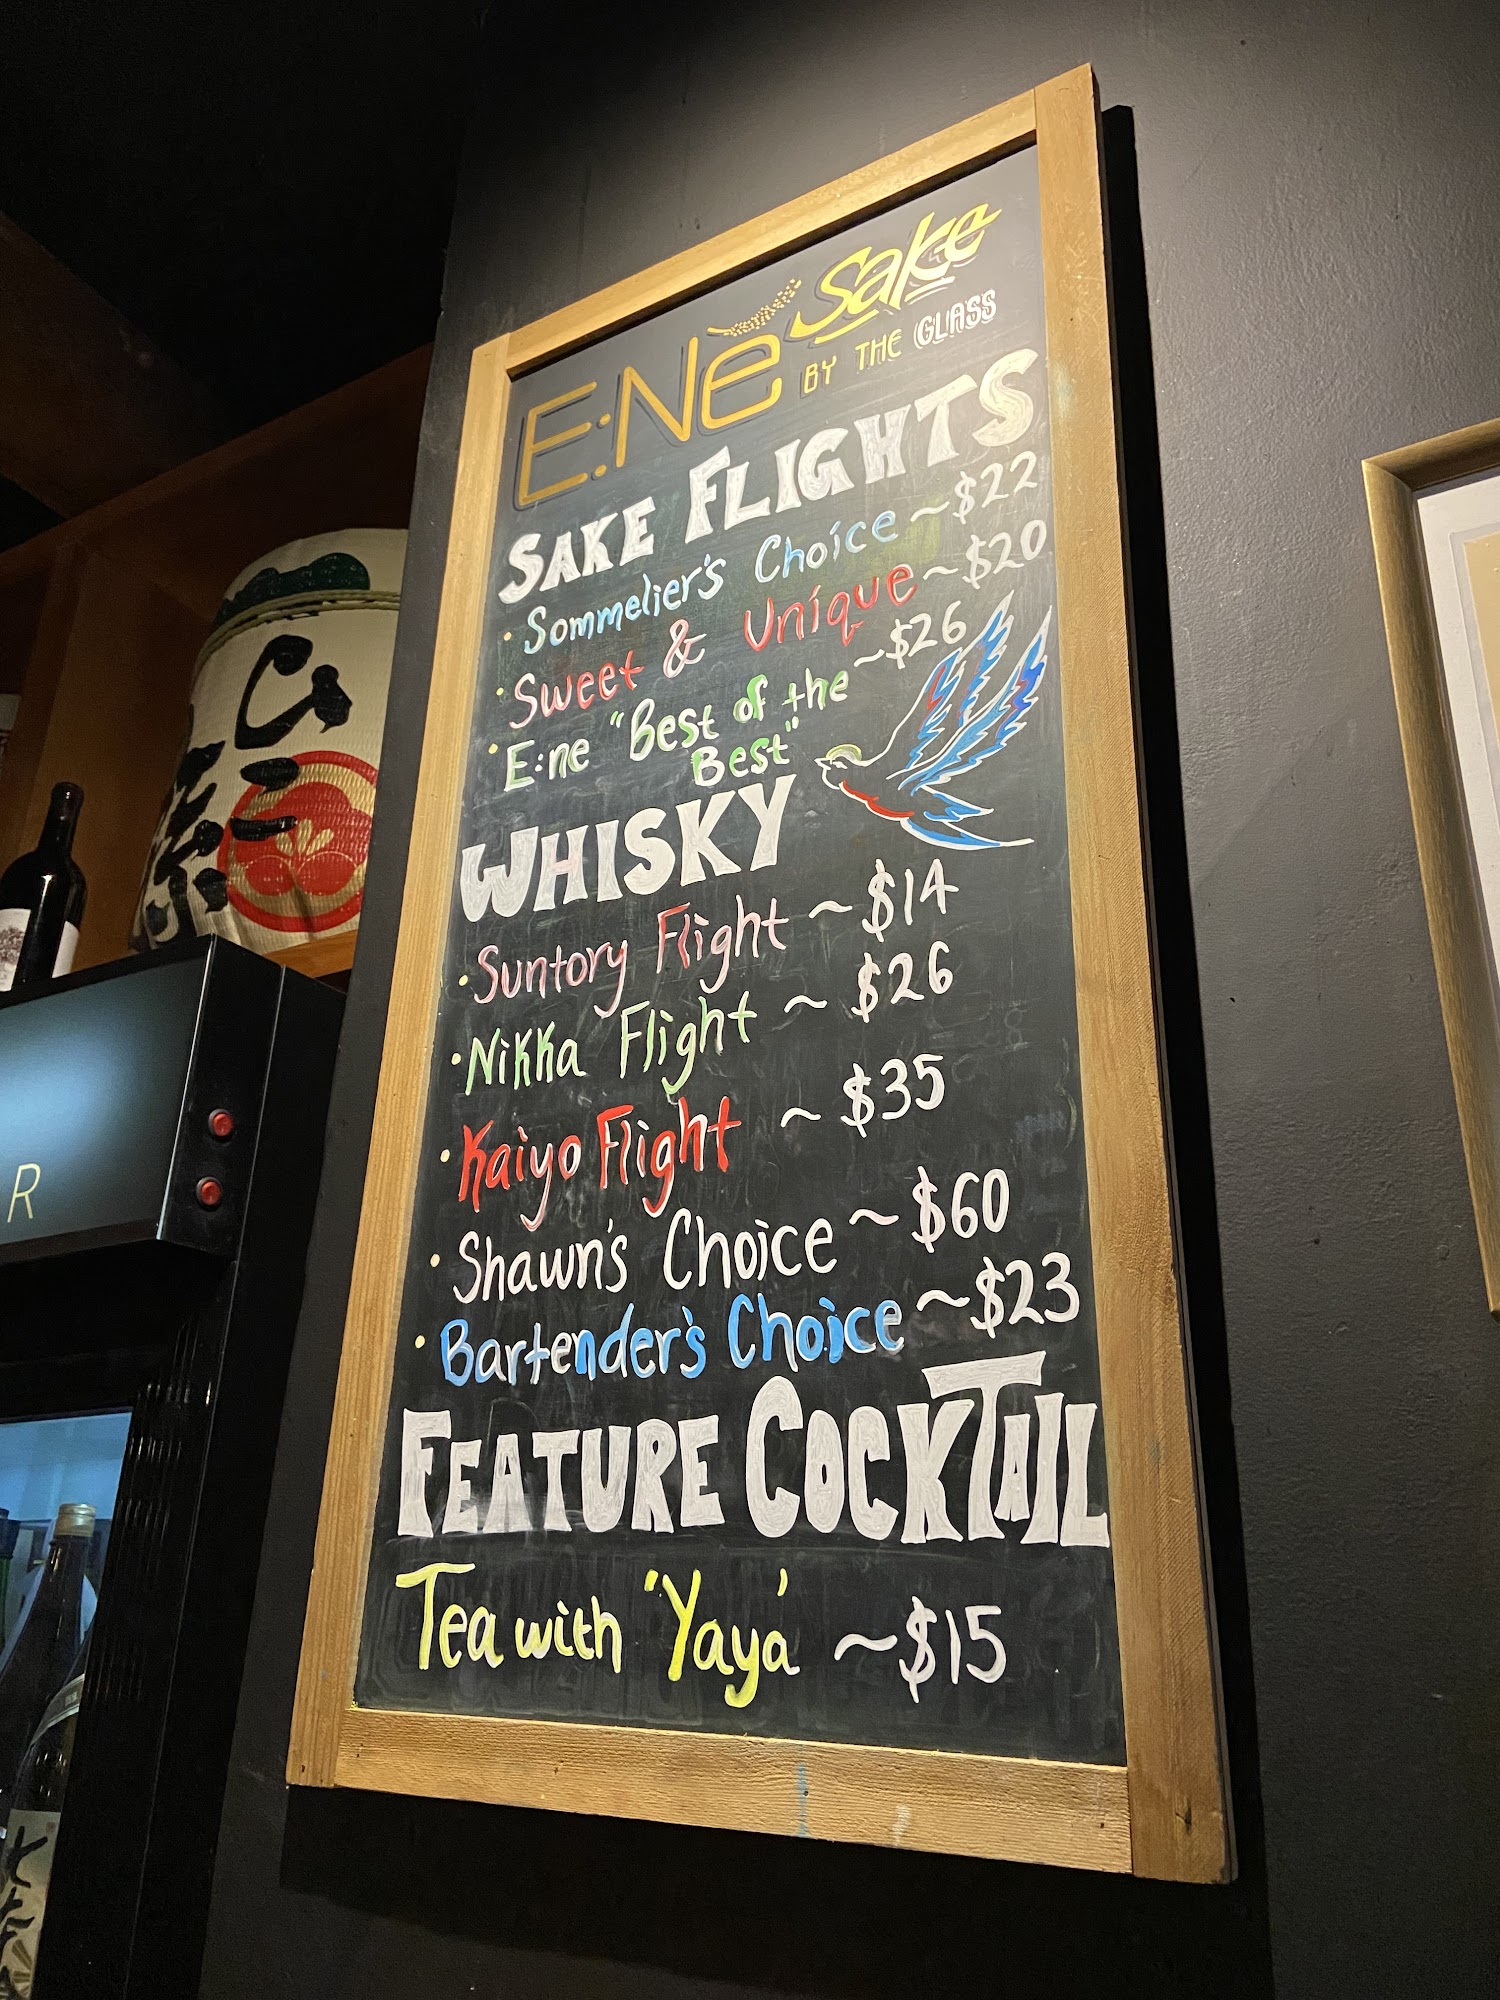 E:Nè Sake
BY THE GLASS
SAKE FLIGHTS
• Sommelier's Choice ~ $22
• Sweet & Unique ~ $20
• E:ne "Best of the ~ $26
Best"
WHISKY
• Suntory Flight ~ $14
• Nikka Flight ~ $26
• Kaiyo Flight ~ $35
• Shawn's Choice ~ $60
• Bartender's Choice ~ $23
FEATURE COCKTAIL
Tea with 'Yaya' ~ $15
R